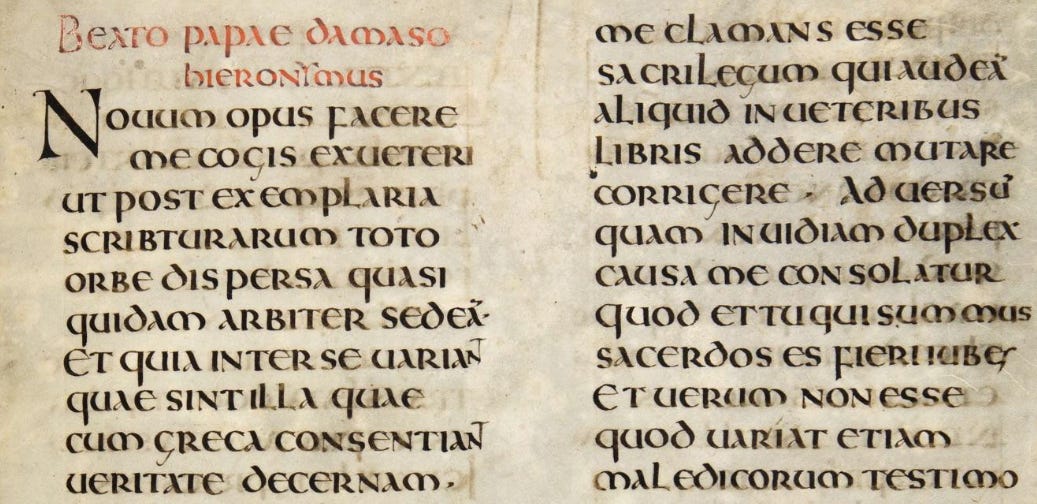 Beato papae damaso
hieronimus
Nouum opus facere
me cogis ex ueteri
ut post exemplaria
scribturarum toto
orbe dispersa quasi
quidam arbiter sedeā·
Et quia inter se uariant
quae sint illa quae
cum greca consentiant
ueritate decernam·
me clamans esse
sacrilegum qui audeā
aliquid in ueteribus
libris addere mutare
corrigere · Aduersū
quam inuidiam duplex
causa me consolatur
quod et tu qui summus
sacerdos es fieri iubes
Et uerum non esse
quod uariat etiam
maledicorum testimo